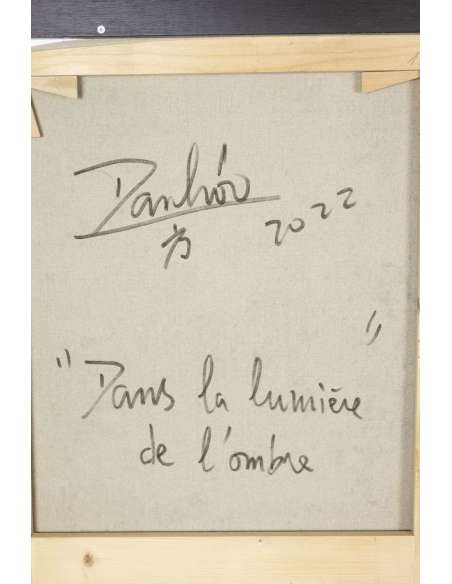 Danhôo 2022
"Dans la lumière"
de l'ombre